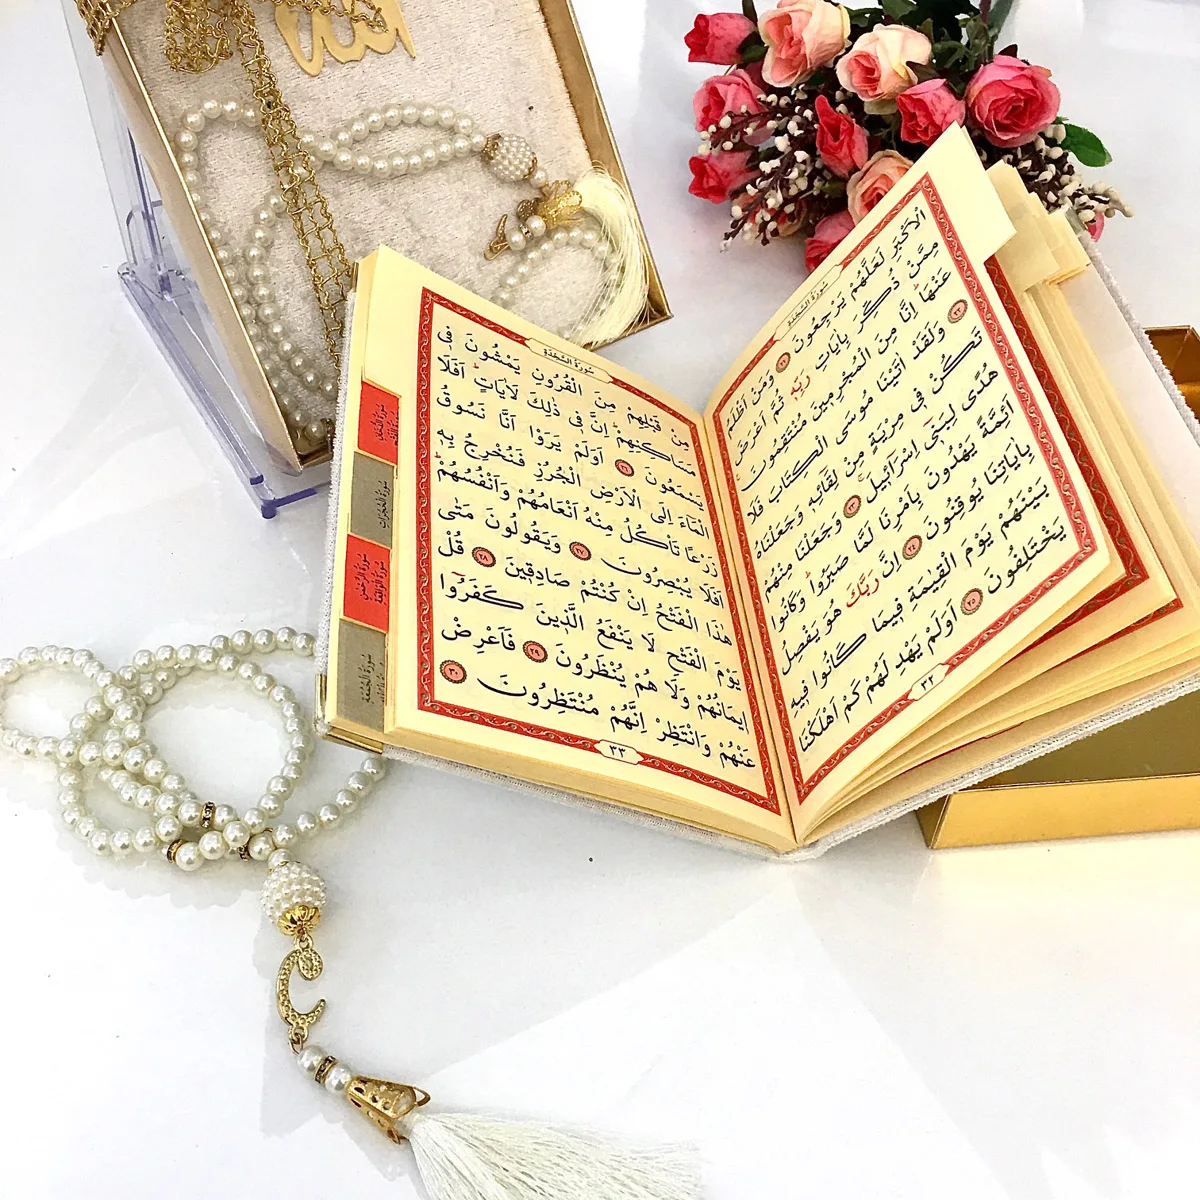 الله
سُورَةُ السَّجْدَةِ
الْاَكْبَرِ لَعَلَّهُمْ يَرْجِعُونَ ٢١ وَمَنْ اَظْلَمُ
مِمَّنْ ذُكِّرَ بِاٰيَاتِ رَبِّهٖ ثُمَّ اَعْرَضَ
عَنْهَا اِنَّا مِنَ الْمُجْرِمٖينَ مُنْتَقِمُونَ
٢٢ وَلَقَدْ اٰتَيْنَا مُوسَى الْكِتَابَ فَلَا
تَكُنْ فٖى مِرْيَةٍ مِنْ لِقَائِهٖ وَجَعَلْنَاهُ
هُدًى لِبَنٖى اِسْرَائٖيلَ ٢٣ وَجَعَلْنَا مِنْهُمْ
اَئِمَّةً يَهْدُونَ بِاَمْرِنَا لَمَّا صَبَرُوا وَكَانُوا
بِاٰيَاتِنَا يُوقِنُونَ ٢٤ اِنَّ رَبَّكَ هُوَ يَفْصِلُ
بَيْنَهُمْ يَوْمَ الْقِيٰمَةِ فٖيمَا كَانُوا فٖيهِ
يَخْتَلِفُونَ ٢٥ اَوَلَمْ يَهْدِ لَهُمْ كَمْ اَهْلَكْنَا
٣٢
سُورَةُ السَّجْدَةِ
مِنْ قَبْلِهِمْ مِنَ الْقُرُونِ يَمْشُونَ فٖى
مَسَاكِنِهِمْ اِنَّ فٖى ذٰلِكَ لَاٰيَاتٍ اَفَلَا
يَسْمَعُونَ ٢٦ اَوَلَمْ يَرَوْا اَنَّا نَسُوقُ
الْمَاءَ اِلَى الْاَرْضِ الْجُرُزِ فَنُخْرِجُ بِهٖ
زَرْعًا تَأْكُلُ مِنْهُ اَنْعَامُهُمْ وَاَنْفُسُهُمْ
اَفَلَا يُبْصِرُونَ ٢٧ وَيَقُولُونَ مَتٰى
هٰذَا الْفَتْحُ اِنْ كُنْتُمْ صَادِقٖينَ ٢٨ قُلْ
يَوْمَ الْفَتْحِ لَا يَنْفَعُ الَّذٖينَ كَفَرُوا
اٖيمَانُهُمْ وَلَا هُمْ يُنْظَرُونَ ٢٩ فَاَعْرِضْ
عَنْهُمْ وَانْتَظِرْ اِنَّهُمْ مُنْتَظِرُونَ ٣٠
٣٣
سُورَةُ الدُّخَانِ
سُورَةُ الْفَتْحِ
سُورَةُ الْحُجُرَاتِ
سُورَةُ الرَّحْمٰنِ
سُورَةُ الْوَاقِعَةِ
سُورَةُ الْجُمُعَةِ